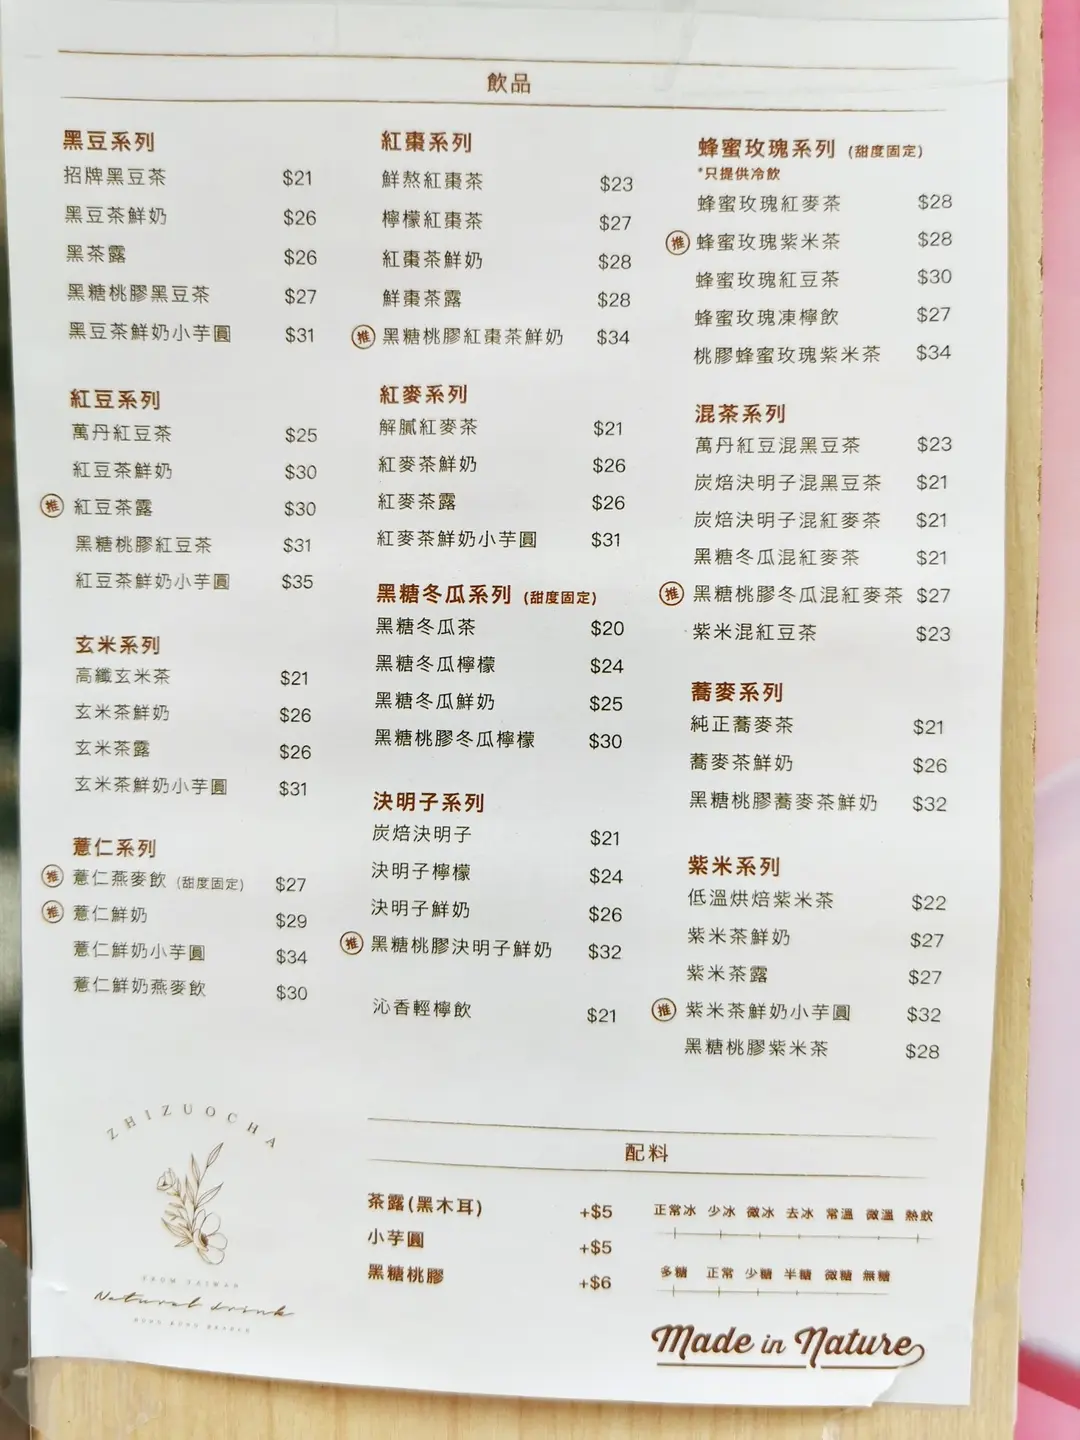 飲品
黑豆系列
招牌黑豆茶 $21
黑豆茶鮮奶 $26
黑茶露 $26
黑糖桃膠黑豆茶 $27
黑豆茶鮮奶小芋圓 $31
紅豆系列
萬丹紅豆茶 $25
紅豆茶鮮奶 $30
推 紅豆茶露 $30
黑糖桃膠紅豆茶 $31
紅豆茶鮮奶小芋圓 $35
玄米系列
高纖玄米茶 $21
玄米茶鮮奶 $26
玄米茶露 $26
玄米茶鮮奶小芋圓 $31
薏仁系列
推 薏仁燕麥飲 (甜度固定) $27
推 薏仁鮮奶 $29
薏仁鮮奶小芋圓 $34
薏仁鮮奶燕麥飲 $30
紅棗系列
鮮熬紅棗茶 $23
檸檬紅棗茶 $27
紅棗茶鮮奶 $28
鮮棗茶露 $28
推 黑糖桃膠紅棗茶鮮奶 $34
紅麥系列
解膩紅麥茶 $21
紅麥茶鮮奶 $26
紅麥茶露 $26
紅麥茶鮮奶小芋圓 $31
黑糖冬瓜系列 (甜度固定)
黑糖冬瓜茶 $20
黑糖冬瓜檸檬 $24
黑糖冬瓜鮮奶 $25
黑糖桃膠冬瓜檸檬 $30
決明子系列
炭焙決明子 $21
決明子檸檬 $24
決明子鮮奶 $26
推 黑糖桃膠決明子鮮奶 $32
沁香輕檸飲 $21
蜂蜜玫瑰系列 (甜度固定)
*只提供冷飲
蜂蜜玫瑰紅麥茶 $28
推 蜂蜜玫瑰紫米茶 $28
蜂蜜玫瑰紅豆茶 $30
蜂蜜玫瑰凍檸飲 $27
桃膠蜂蜜玫瑰紫米茶 $34
混茶系列
萬丹紅豆混黑豆茶 $23
炭焙決明子混黑豆茶 $21
炭焙決明子混紅麥茶 $21
黑糖冬瓜混紅麥茶 $21
推 黑糖桃膠冬瓜混紅麥茶 $27
紫米混紅豆茶 $23
蕎麥系列
純正蕎麥茶 $21
蕎麥茶鮮奶 $26
黑糖桃膠蕎麥茶鮮奶 $32
紫米系列
低溫烘焙紫米茶 $22
紫米茶鮮奶 $27
紫米茶露 $27
推 紫米茶鮮奶小芋圓 $32
黑糖桃膠紫米茶 $28
ZHIZUOCHA
FROM TAIWAN
Natural drink
配料
茶露(黑木耳) +$5
小芋圓 +$5
黑糖桃膠 +$6
正常冰 少冰 微冰 去冰 常溫 微溫 熱飲
多糖 正常 少糖 半糖 微糖 無糖
Made in Nature